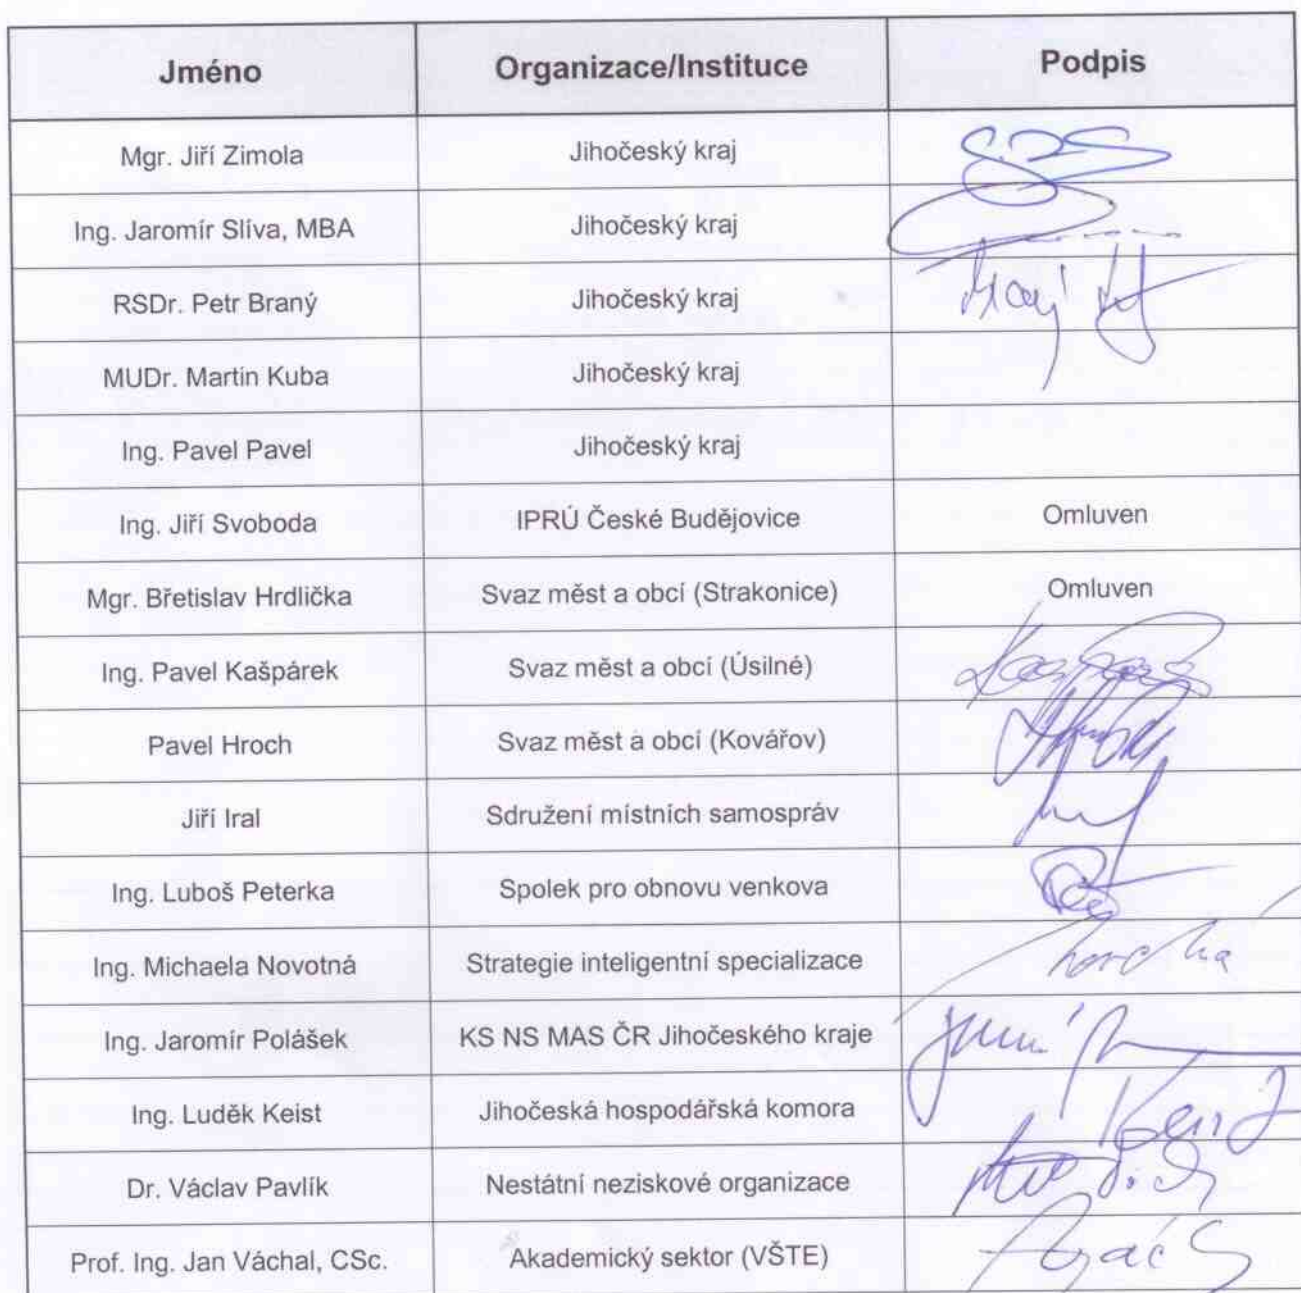 Jméno Organizace/Instituce Podpis
Mgr. Jiří Zimola Jihočeský kraj
Ing. Jaromír Slíva, MBA Jihočeský kraj
RSDr. Petr Braný Jihočeský kraj
MUDr. Martin Kuba Jihočeský kraj
Ing. Pavel Pavel Jihočeský kraj
Ing. Jiří Svoboda IPRÚ České Budějovice Omluven
Mgr. Břetislav Hrdlička Svaz měst a obcí (Strakonice) Omluven
Ing. Pavel Kašpárek Svaz měst a obcí (Úsilné)
Pavel Hroch Svaz měst a obcí (Kovářov)
Jiří Iral Sdružení místních samospráv
Ing. Luboš Peterka Spolek pro obnovu venkova
Ing. Michaela Novotná Strategie inteligentní specializace
Ing. Jaromír Polášek KS NS MAS ČR Jihočeského kraje
Ing. Luděk Keist Jihočeská hospodářská komora
Dr. Václav Pavlík Nestátní neziskové organizace
Prof. Ing. Jan Váchal, CSc. Akademický sektor (VŠTE)